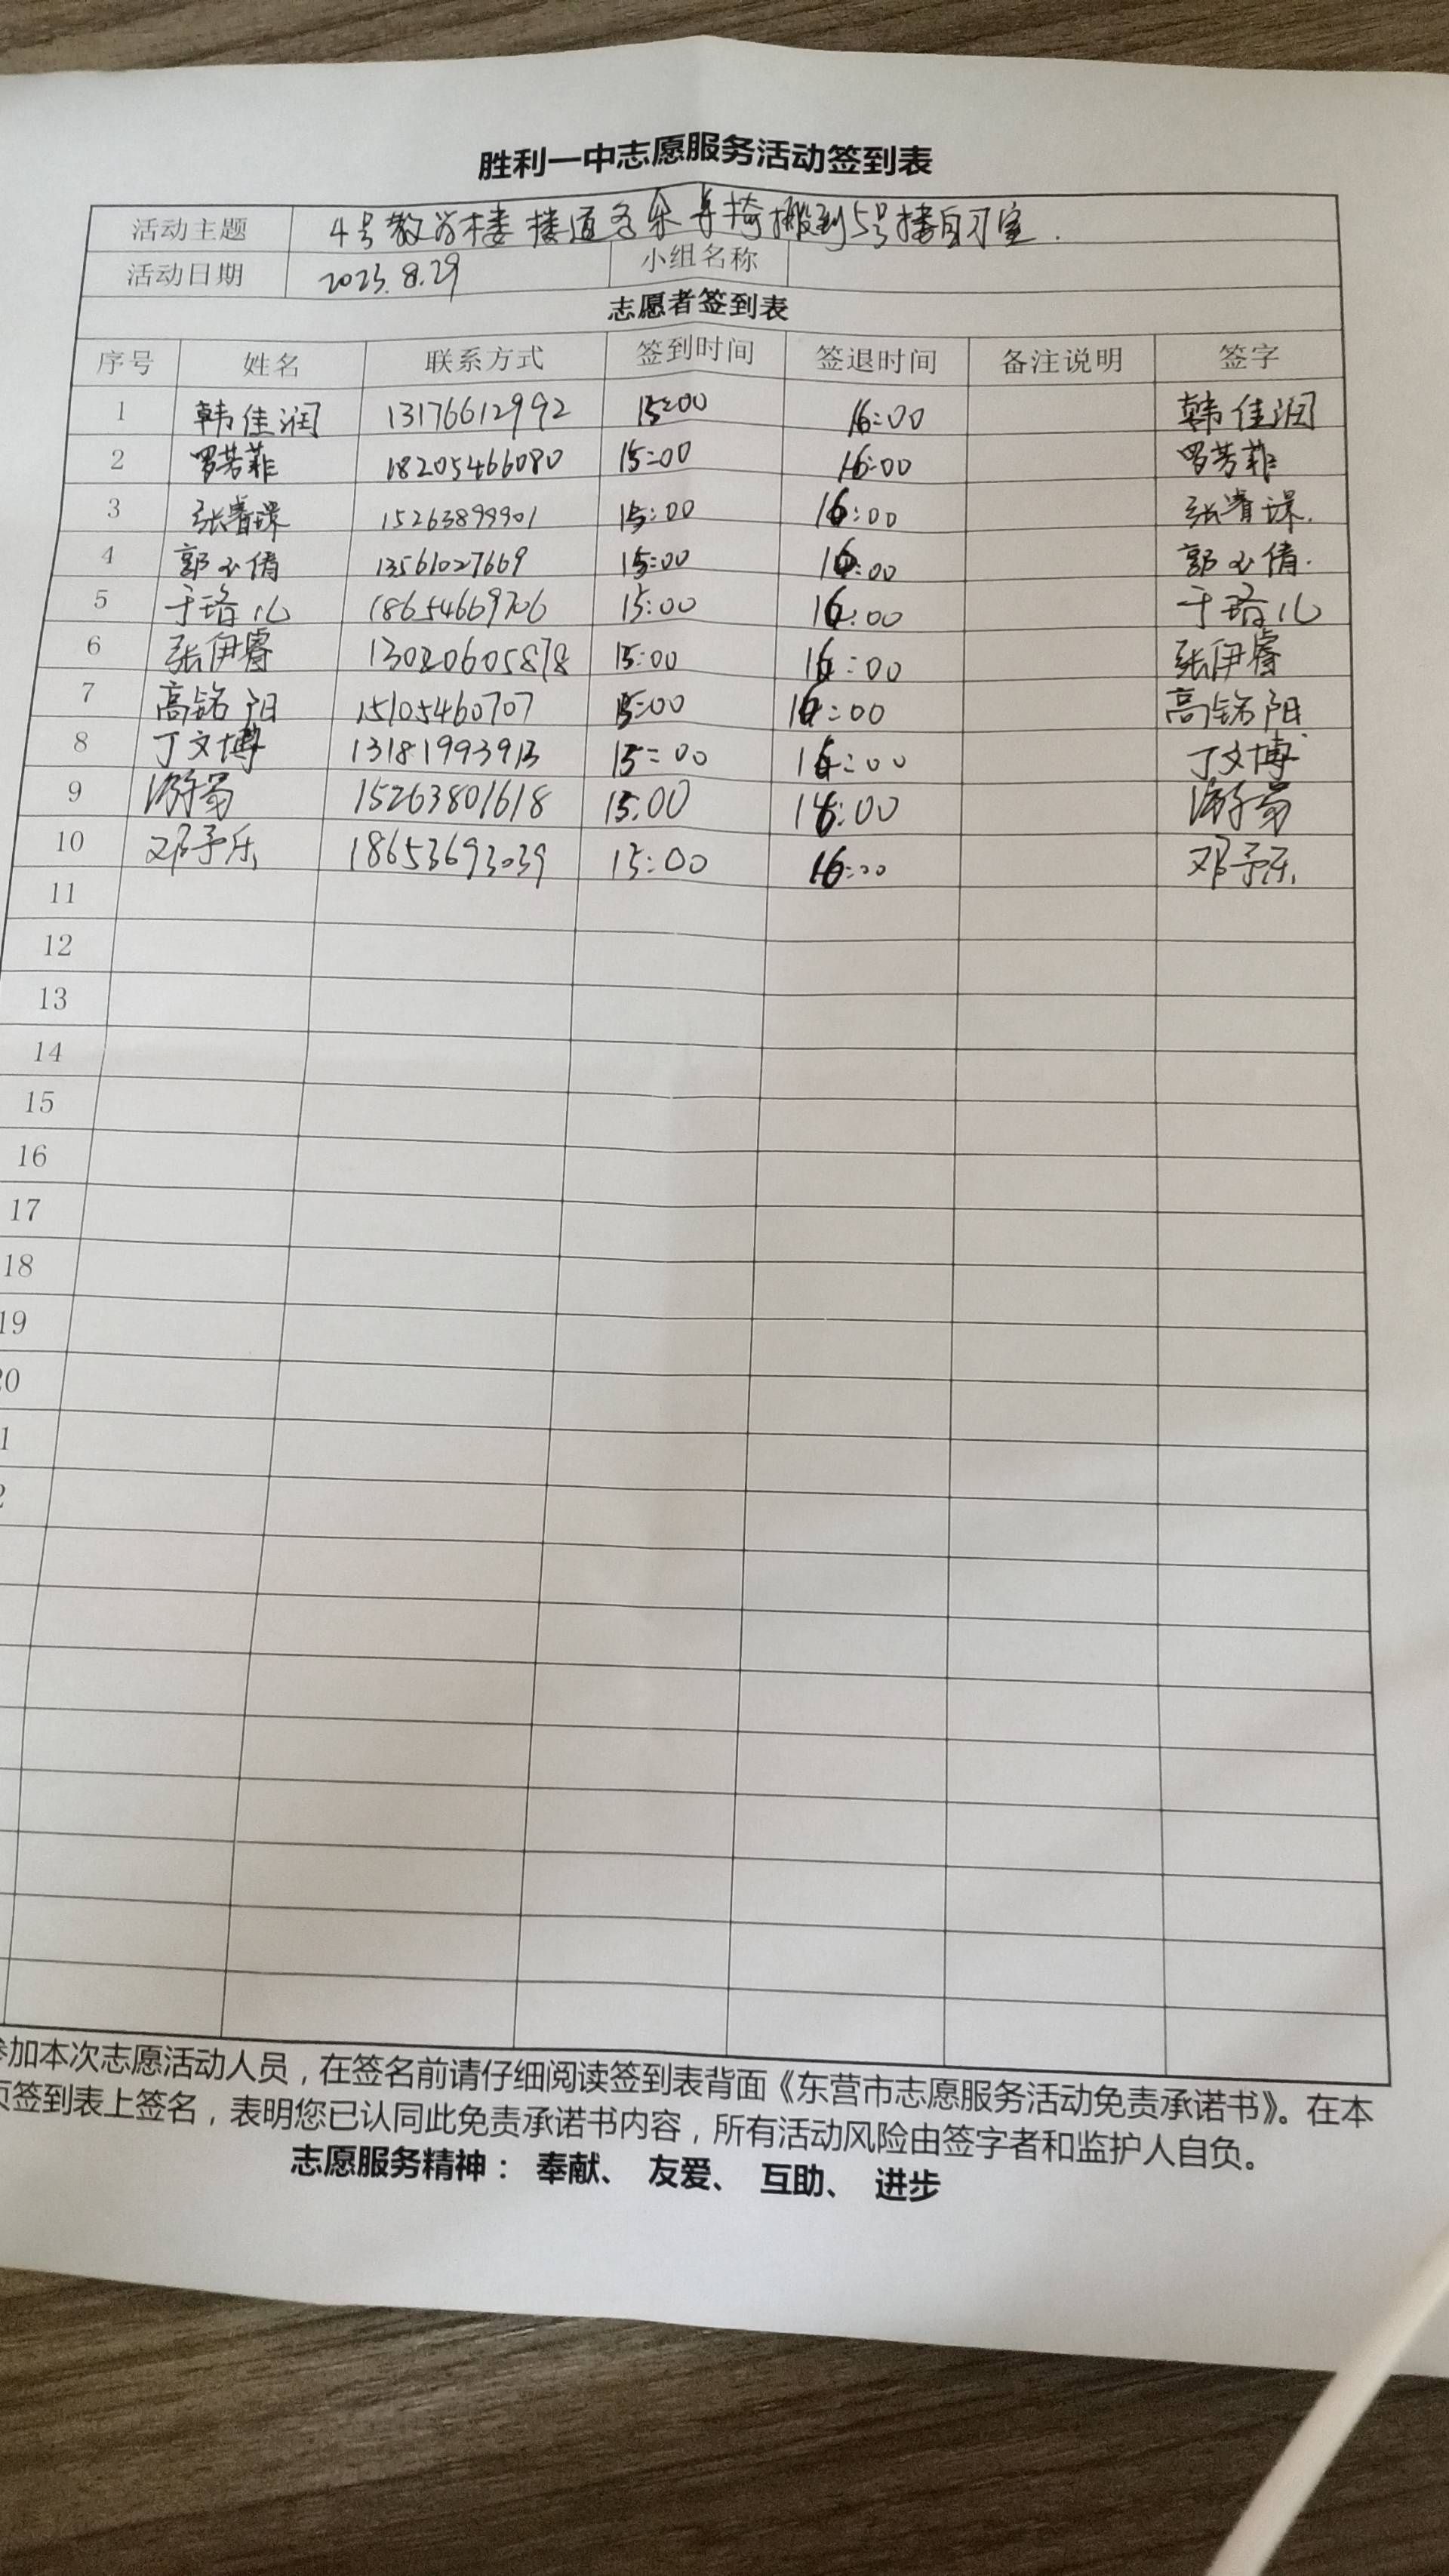 胜利一中志愿服务活动签到表
活动主题 4号教学楼楼道多余桌椅搬到5号楼自习室.
活动日期 2023.8.29 小组名称
志愿者签到表
序号 姓名 联系方式 签到时间 签退时间 备注说明 签字
1 韩佳润 13176612992 15:00 16:00 韩佳润
2 罗芳菲 18205466080 15:00 16:00 罗芳菲
3 张睿璟 15263899901 15:00 16:00 张睿璟.
4 郭小倩 13561027669 15:00 16:00 郭小倩.
5 于珞儿 18654669706 15:00 16:00 于珞儿
6 张伊睿 13020605878 15:00 16:00 张伊睿
7 高铭阳 15105460707 15:00 16:00 高铭阳
8 丁文博 13181993913 15:00 16:00 丁文博
9 15263801618 15:00 16:00
10 邓予乐 18653693039 15:00 16:00 邓予乐
11
12
13
14
15
16
17
18
19
20
1
2
参加本次志愿活动人员，在签名前请仔细阅读签到表背面《东营市志愿服务活动免责承诺书》。在本
页签到表上签名，表明您已认同此免责承诺书内容，所有活动风险由签字者和监护人自负。
志愿服务精神： 奉献、 友爱、 互助、 进步